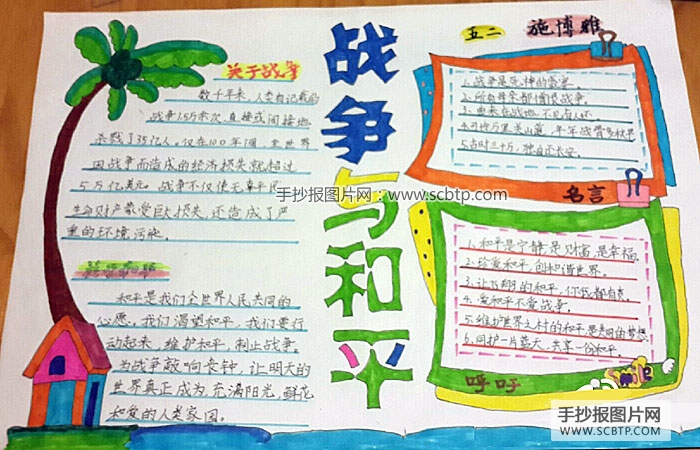 五二 施博雅
战争与和平
关于战争
数千年来，人类有记载的
战争15万余次，直接或间接地
杀戮了35亿人。仅在100年间，全世界
因战争而造成的经济损失就超过
5万亿美元。战争不仅使无辜平民
生命财产蒙受巨大损失，还造成了严
重的环境污染。
和平是我们全世界人民共同的
心愿。我们渴望和平，我们要行
动起来，维护和平，制止战争。
为战争敲响丧钟，让明天的
世界真正成为充满阳光，鲜花
和爱的人类家园。
1.战争是死神的宴席。
2.所有母亲都憎恨战争。
3.由来征战地，不见有人还。
年年战骨多秋草
名言
1.和平是宁静，是财富，是幸福。
2.珍爱和平，创和谐世界。
4.爱和平不爱战争。
5.维护世界之村的和平是共同的梦想
6.同护一片蓝天，共享一份和平。
呼吁
Smile
手抄报图片网：www.scbtp.com
手抄报图片网
WWW.SCBTP.COM